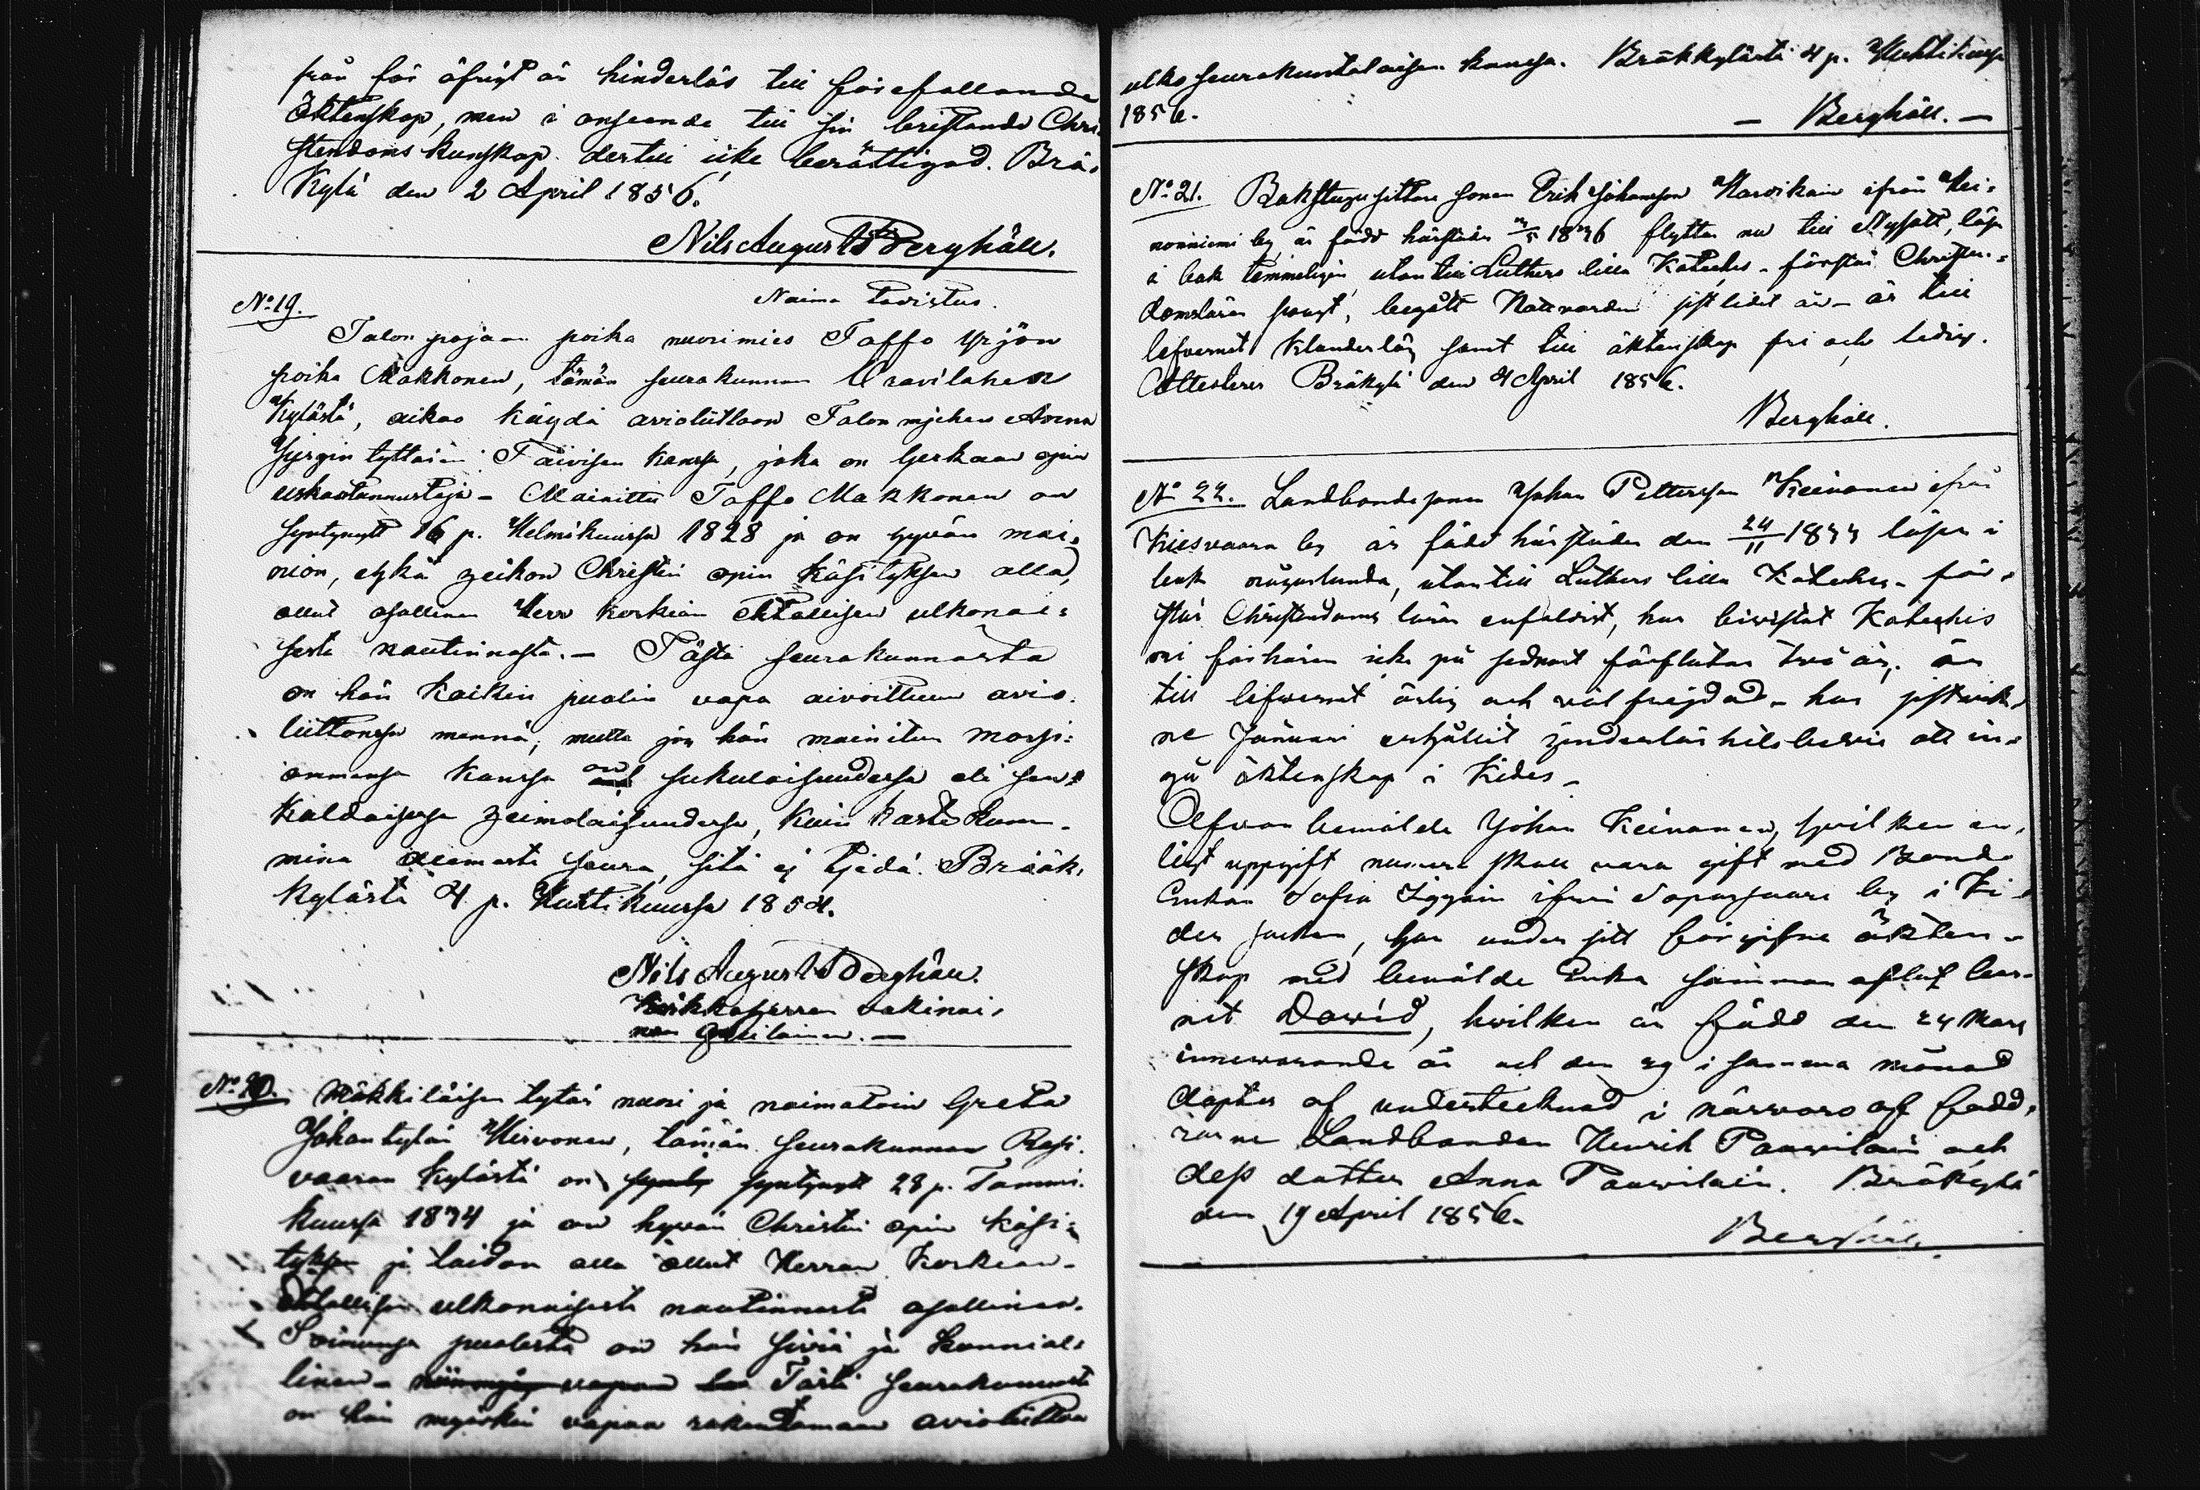 från för öfrigt är hinderlös till förefallande
Äktenskap, men i anseende till sin bristande Chri-
stendoms kunskap dertill icke berättigad. Brä-
kylä den 2 April 1856.
Nils August Berghäll.
No 19. Naima Todistus.
Talon pojan poika nuorimies Taffo Yrjön
poika Makkonen, tämän seurakunnan Oravilahen
kylästä, aikoo käydä avioliittoon Talon mjehen Anna
Yjrgin tyttären Täivisen kanssa, joka on Grekan opin
uskontunnustaja - Mainittu Taffo Makkonen on
syntynytt 16 p. Helmikuussa 1828 ja on hyvän mai-
nion, eikä heikon Christin opin käsityksen alla,
ollut osallinen Herr korkian Ehtollisen ulkonai-
sesta nautinnosta. - Tästä seurakunnasta
on hän kaikin puolin vapa aivoittuun avio-
liittonsa mennä, mutta jos hän mainitun morsi-
ammensa kanssa on sukulaisuudessa eli san-
kaldaisessa heimolaisuudessa, kuin kasti kum-
mina olemasta seura, sitä ej tjedä. Brääk-
kylästä 4 p. Huhtikuussa 1854.
Nils August Berghäll.
Kirkkoherran vakinai-
nen apulainen. -
No 20. Mökkiläisen tytär nuori ja naimatoin Greta
Johan tytär Hirvonen, tämän seurakunnan Rasi-
vaaran kylästä on synty syntynytt 28 p. Tammi-
kuussa 1834 ja on hyvän Christin opin käsi-
tyksen ja taidon alla ollut Herran korkian-
Ehtollisen ulkonaisesta nautinnosta osallinen.
puolesta on hän siviä ja kunnial-
linen - vapaa Tästä seurakunnasta
on hän myöskin vapaa rakentamaan avioliittoa
ulko seurakuntalaisen kanssa. Bräkkylästä 4 p. Huhtikuussa
1856.
- Berghäll. -
No 21. Bakstugusittare sonen Erik Johansson Karvikain ifrån Hei-
noniemi by är född härstädes 1836 flyttar nu till Nyslott, läser
i bok temmeligen, utantill Luthers lilla Kateches - förstår Christen-
domsläran svagt, begått Nattvarden sistlidet år - är till
lefvernet klanderlös samt till äktenskap fri och ledig.
Attesterar Bräkylä den 4 April 1856.
Berghäll.
No 22. Landbondesonen Johan Pettersson Keinonen ifrån
Kiesvaara by är född härstädes den 24/11 1833 läser i
bok någorlunda, utantill Luthers lilla Kateches - för-
står Christendoms läran enfaldigt, har bivistat Kateches
ni förhören icke på sednast förflutne två år, är
till lefvernet ärlig och väl frejdad - har sistvik-
ne Januari erhållit hinderlöshetsbevis att in-
gå äktenskap i Kides -
Ofvan bemälde Johan Keinonen, hvilken en-
ligt uppgift numera skall vara gift med Bonde
Enkan Sofia Iggoin ifrån Soparsaari by i Ki-
des socken, har under sitt föregifne äkten-
skap med bemälde Enka samman aflat bar-
net Dawid, hvilken är född den 24 Mars
innewarande år och den 29 i samma månad
döptes af undertecknad i närvaro af fadd-
rarne Landbonden Henrik Pauvilain och
dess dotter Anna Pauvilain. Bräkylä
den 19 April 1856.
Berghäll.